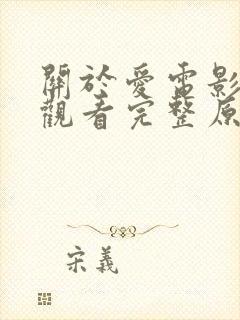 關於愛電影
觀看完整原
宋義